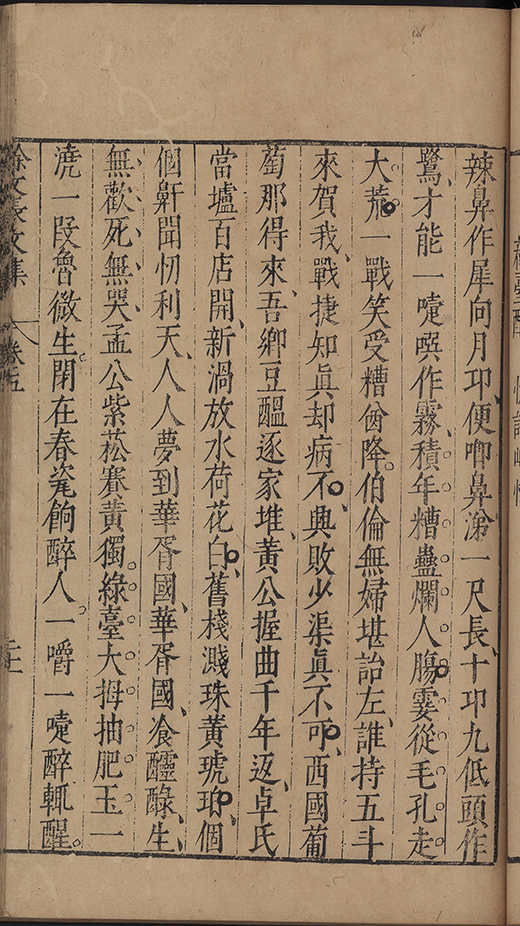 辣鼻作犀向月卬便唧鼻涕一尺長十卬九低頭作
鷺才能一嚏噀作霧積年糟蠱爛人腸霎從毛孔走
大荒一戰笑受糟酋降伯倫無婦堪詒左誰持五斗
來賀我戰捷知眞却病不興敗少渠眞不可西國葡
萄那得來吾鄉豆醖逐家堆黃公握曲千年返卓氏
當壚百店開新渦放水荷花白舊棧濺珠黃琥珀個
個鼾聞忉利天人人夢到華胥國華胥國飡醽醁生
無歡死無哭孟公紫菘賽黃獨綠臺大拇抽肥玉一
澆一段魯微生閉在春瓮餉醉人一嚼一嚏醉輒醒
徐文長文集 卷五